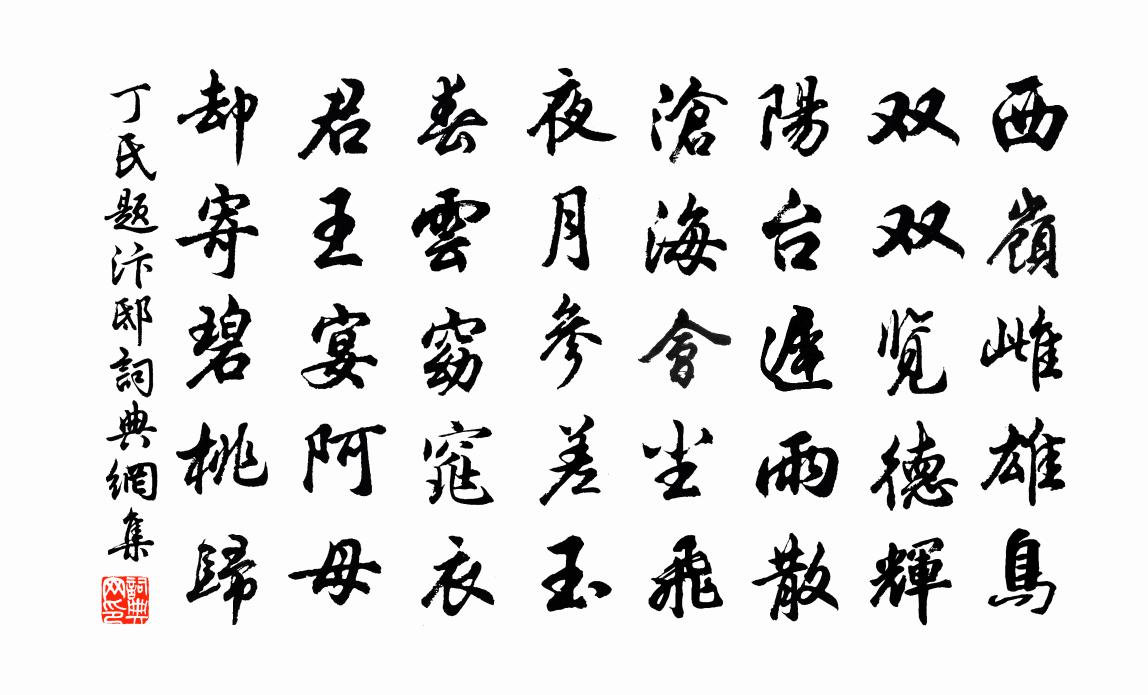 西嶺雌雄鳥
双双览德輝
陽台遲雨散
滄海會尘飛
夜月參差玉
春雲窈窕衣
君王宴阿母
却寄碧桃歸
丁氏题汴邸詞典網集
詞典网印